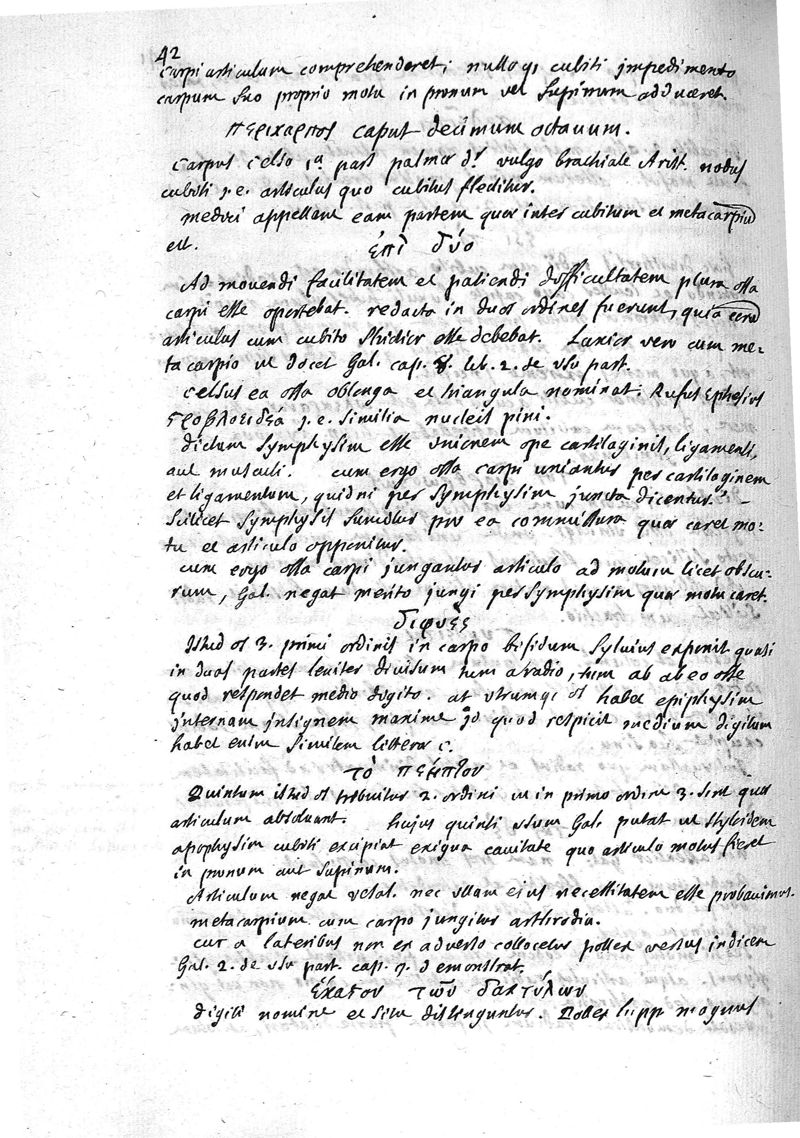 42
carpi articulum comprehenderet; nullaq; cubiti jmpedimento
carpum suo proprio motu in pronum vel supinum adduceret.
περικαρπος caput decimum octauum.
Carpus Celso 1a pars palmæ dr vulgo brachiale Arist. nodus
cubiti j.e. articulus quo cubitus flectitur.
medici appellant eam partem quæ inter cubitum et metacarpiũ
est.
ἐπὶ δύο
Ad movendi facilitatem et patiendi difficultatem plura ossa
carpi esse oportebat. redacta in duos ordines fuerunt, quia eorũ
articulus cum cubito strictior esse debebat. Laxior vero cum me-
tacarpio ut docet Gal. cap. 8. lib. 2. de vsu part.
Celsus ea ossa oblonga et triangula nominat; Rufus Ephesius
στροβλοειδέα j.e. similia nucleis pini.
dictum symphysim esse vnionem ope cartilaginis, ligamenti,
aut musculi. cum ergo ossa carpi uniantur per cartilaginem
et ligamentum, quidni per symphysim juncta dicentur? -
Scilicet symphysis sumitur pro ea commissura quæ caret mo-
tu et articulo opponitur.
cum ergo ossa carpi jungantur articulo ad motum licet obscu-
rum, Gal. negat merito jungi per symphysim quæ motu caret.
διφυὲς
Istud os 3. primi ordinis in carpo bifidum Syluius exponit quasi
in duas partes leuiter diuisum tum a radio, tum ab ab eo osse
quod respondet medio digito. at vtrumq; os habet epiphysim
jnternam jnsignem maxime quod respicit medium digitum
habet enim similem litteræ c.
τὸ πέμπτον
Quintum istud os tribuitur 2. ordini ut in primo ordine 3. sint quæ
articulum absoluant. hujus quinti vsum Gal. putat ut styloidem
apophysim cubiti excipiat exigua cauitate quo articulo motus fieret
in pronum aut supinum.
Articulum negat Vesal. nec vllam ejus necessitatem esse probauimus.
metacarpium cum carpo jungitur arthrodia.
cur a lateribus non ex aduerso collocetur pollex versus indicem
Gal. 2. de vsu part. cap. 9. demonstrat.
ἕκαστον τῶν δακτύλων
digiti nomine et situ distinguntur. Pollex magnus